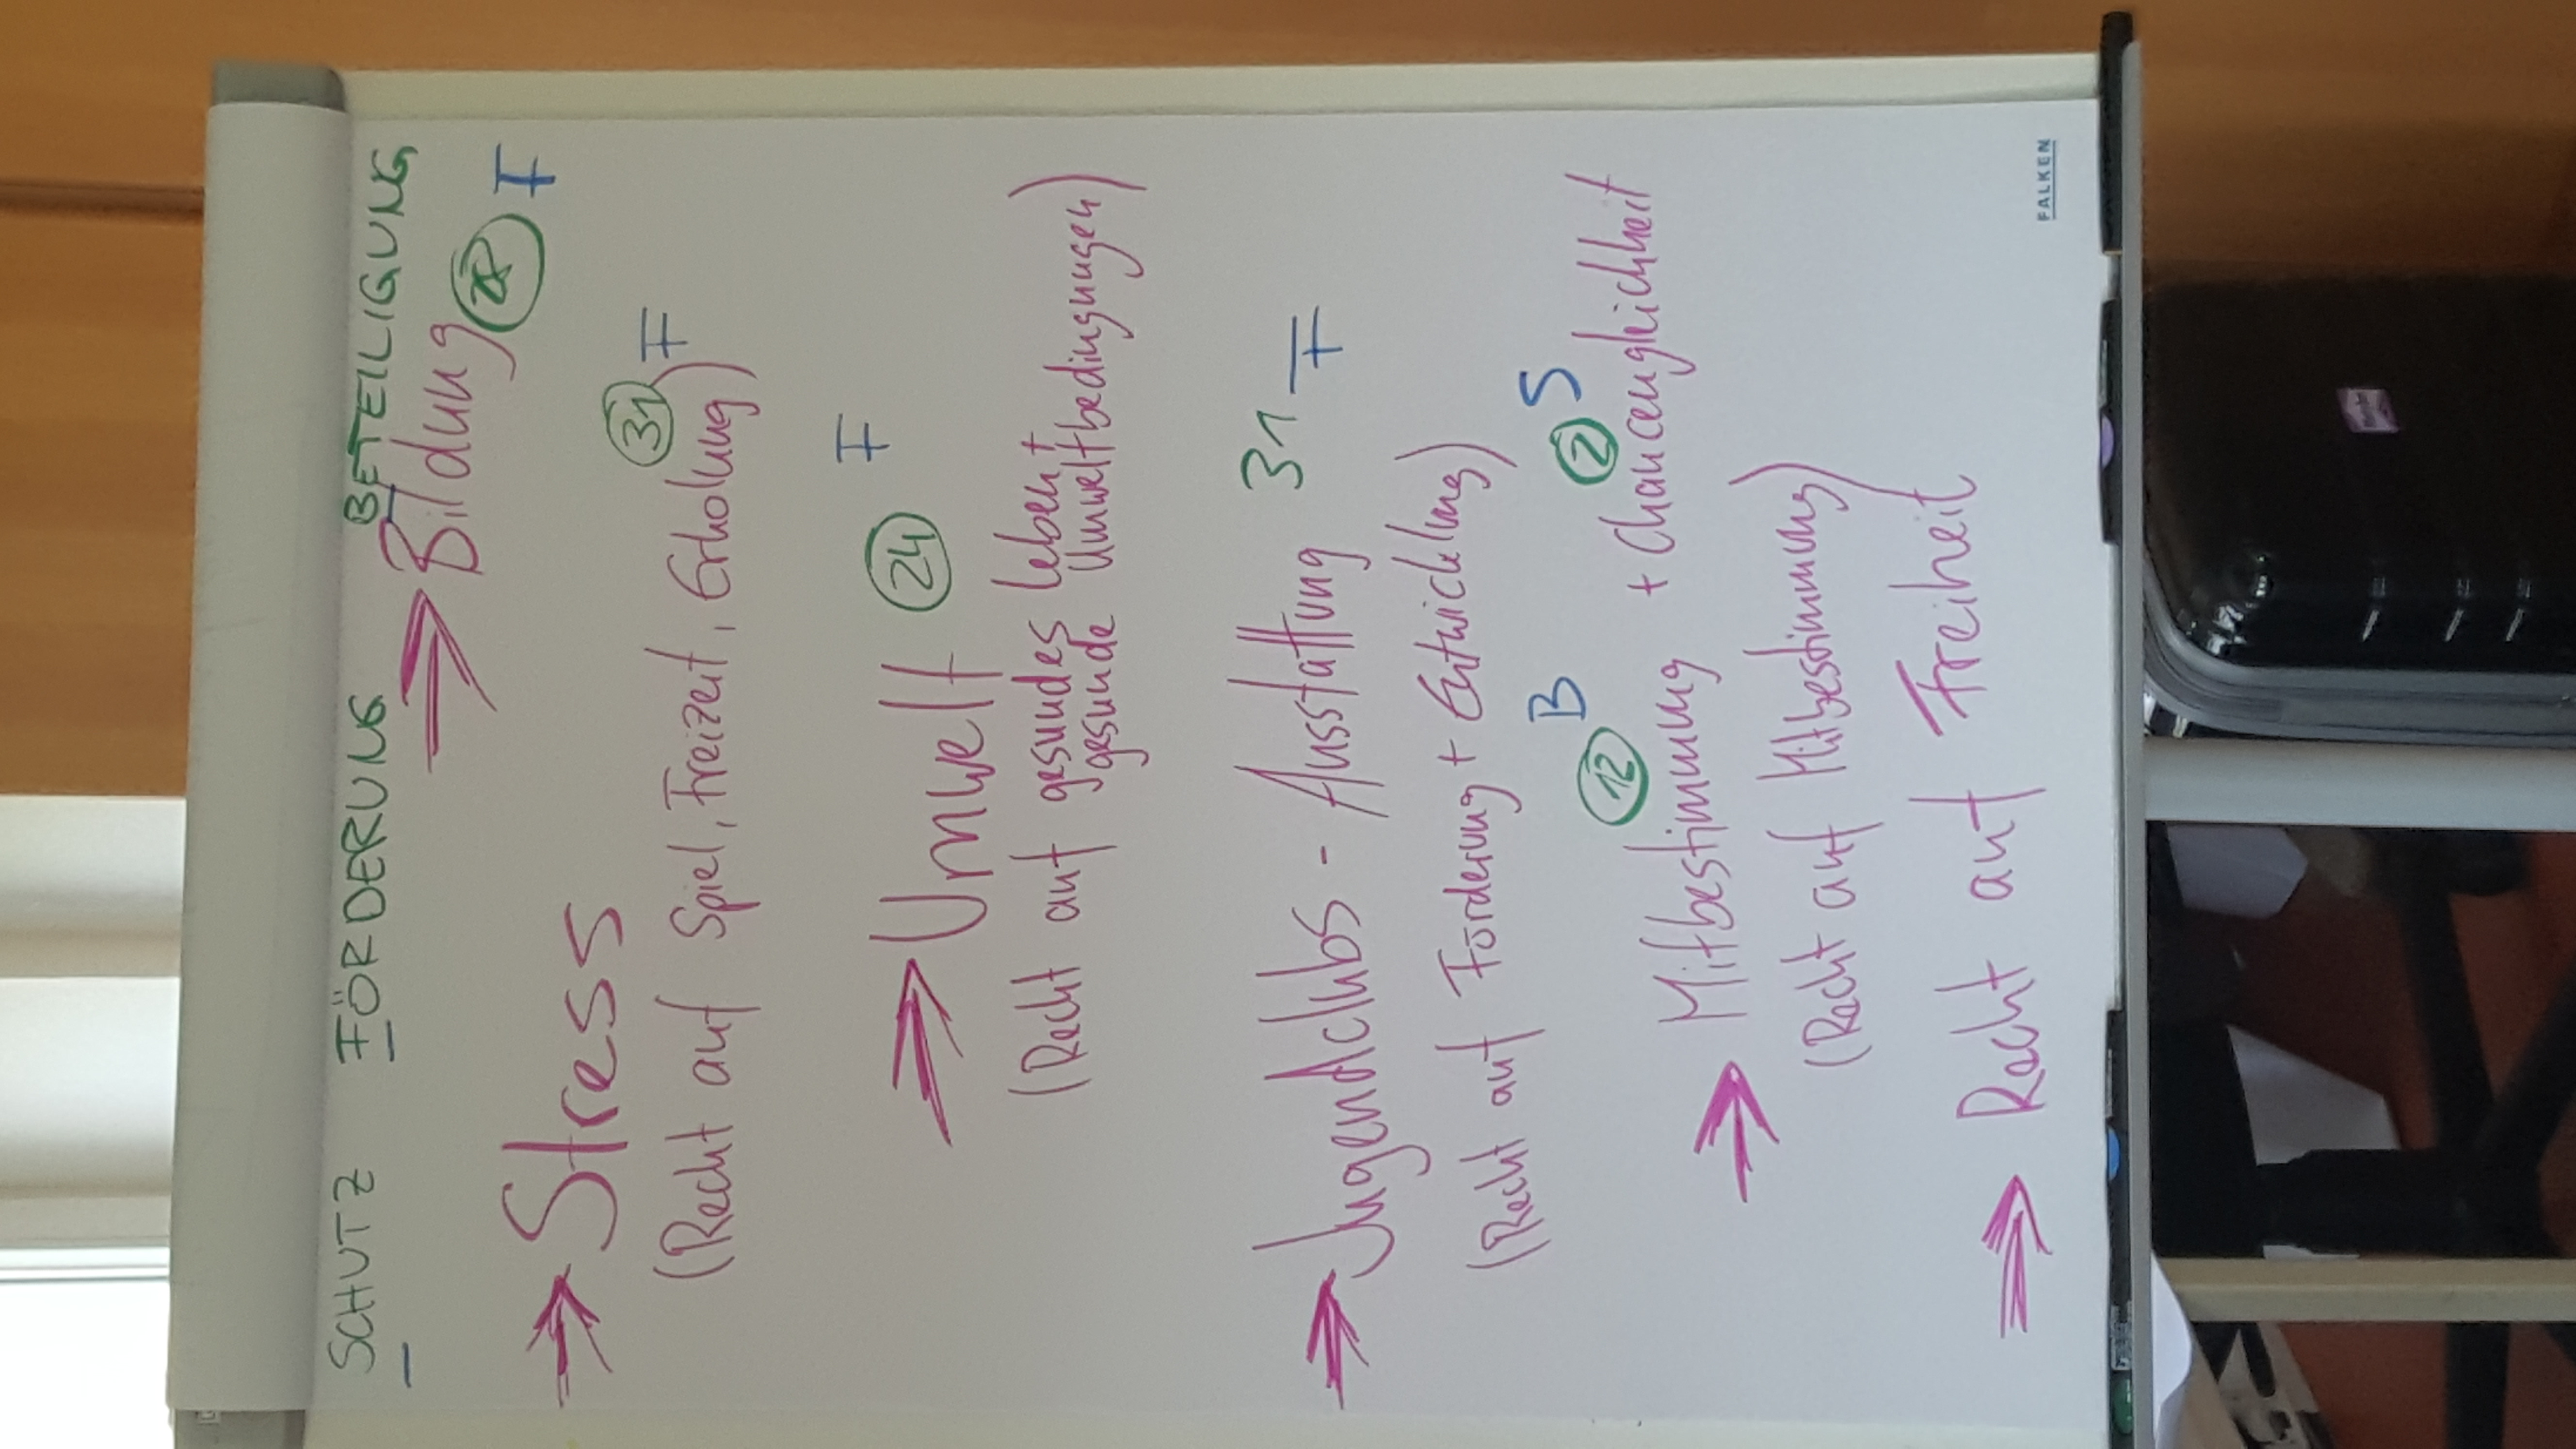 SCHUTZ FÖRDERUNG BETEILIGUNG
Bildung 28 F
Stress
(Recht auf Spiel, Freizeit, Erholung) 31 F
Umwelt 24 F
(Recht auf gesundes Leben +
gesunde Umweltbedingungen)
Jugendclubs - Ausstattung 31 F
(Recht auf Förderung + Entwicklung)
12 B 2 S
Mitbestimmung + Chancengleichheit
(Recht auf Mitbestimmung)
Recht auf Freiheit
FALKEN